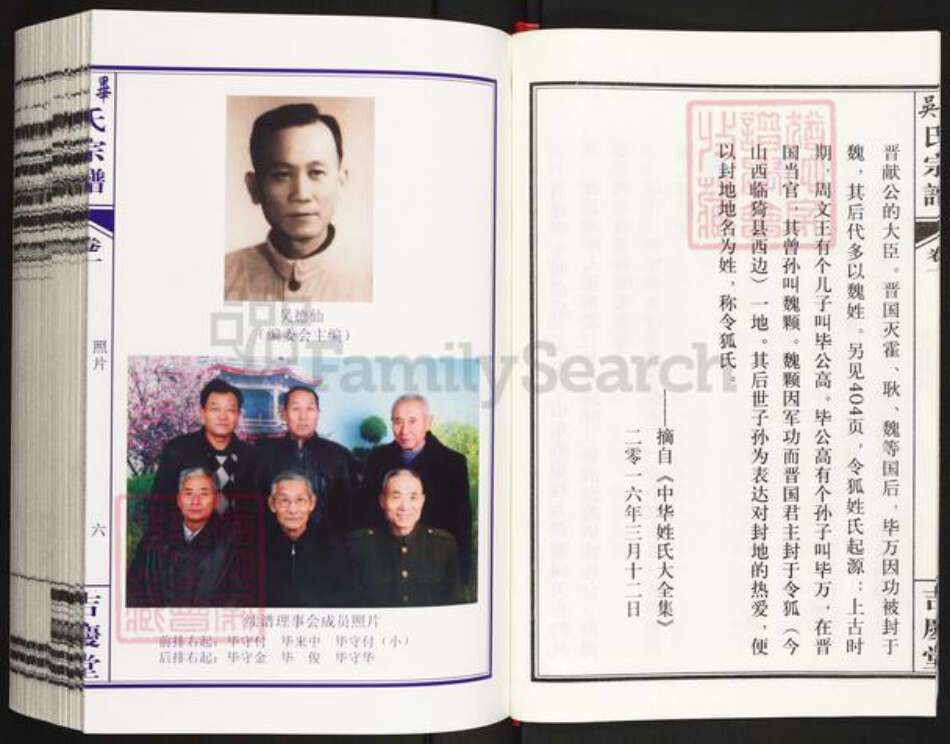 畢氏宗譜
卷一
照片
六
吉慶堂
吴德仙
(编委会主编)
续谱理事会成员照片
前排右起：毕守付 毕来中 毕守付(小)
后排右起：毕守金 毕 俊 毕守华
FamilySearch
吳氏宗譜
卷一
吉慶堂
晋献公的大臣。晋国灭霍、耿、魏等国后，毕万因功被封于
魏，其后代多以魏姓。另见404页，令狐姓氏起源：上古时
期，周文王有个儿子叫毕公高。毕公高有个孙子叫毕万，在晋
国当官，其曾孙叫魏颗。魏颗因军功而晋国君主封于令狐（今
山西临猗县西边）一地。其后世子孙为表达对封地的热爱，便
以封地地名为姓，称令狐氏。
——摘自《中华姓氏大全集》
二零一六年三月十二日